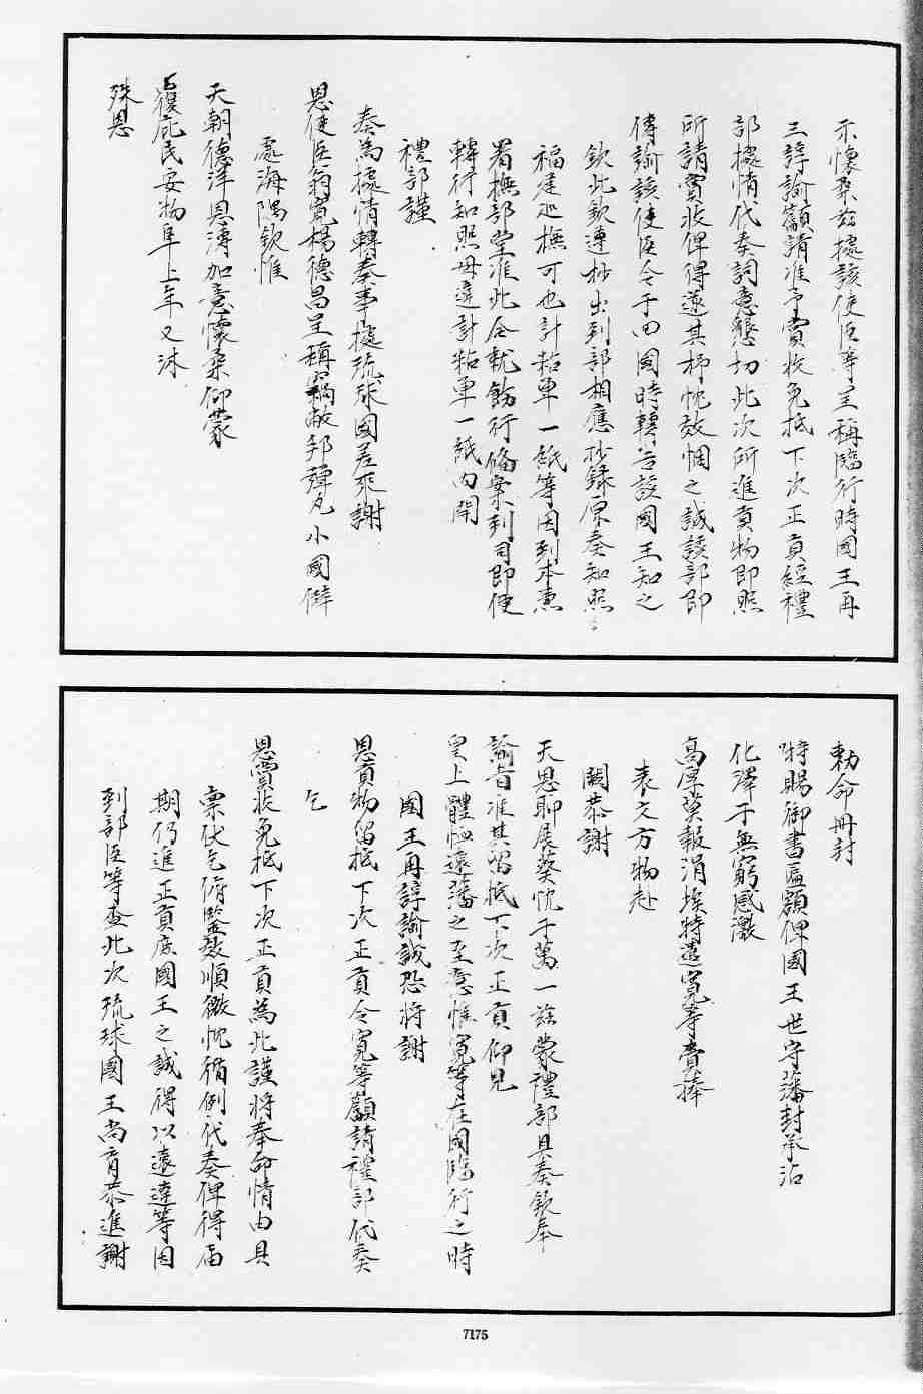 示懷柔茲據該使臣等呈稱臨行時國王再
三諄諭籲請准予賞收免抵下次正貢經禮
部據情代奏詞意懇切此次所進貢物即照
所請賞收俾得遂其抒忱效悃之誠該部即
傳諭該使臣令于回國時轉告該國王知之
欽此欽遵抄出到部相應抄錄原奏知照
福建巡撫可也計粘單一紙等因到本
署撫部堂准此合就飭行備案到司即便
轉行知照毋違計粘單一紙內開
禮部謹
奏為據情轉奏事據琉球國差來謝
恩使臣翁寬楊德昌呈稱竊敝邦彈丸小國僻
處海隅欽惟
天朝德洋恩溥加意懷柔仰蒙
覆庇民安物阜上年又沐
殊恩
勅命冊封
特賜御書匾額俾國王世守藩封承沾
化澤于無窮感激
高厚莫報涓埃特遣寬等賫捧
表文方物赴
闕恭謝
天恩聊展葵忱于萬一茲蒙禮部具奏欽奉
諭旨准其留抵下次正貢仰見
皇上體恤遠藩之至意惟寬等在國臨行之時
國王再諄諭誠恐將謝
恩貢物留抵下次正貢令寬等籲請禮部代奏
乞
恩賞收免抵下次正貢為此謹將奉命情由具
稟伏乞俯鑒效順微忱循例代奏俾得屆
期仍進正貢庶國王之誠得以遠達等因
到部臣等查此次琉球國王尚育恭進謝
7175